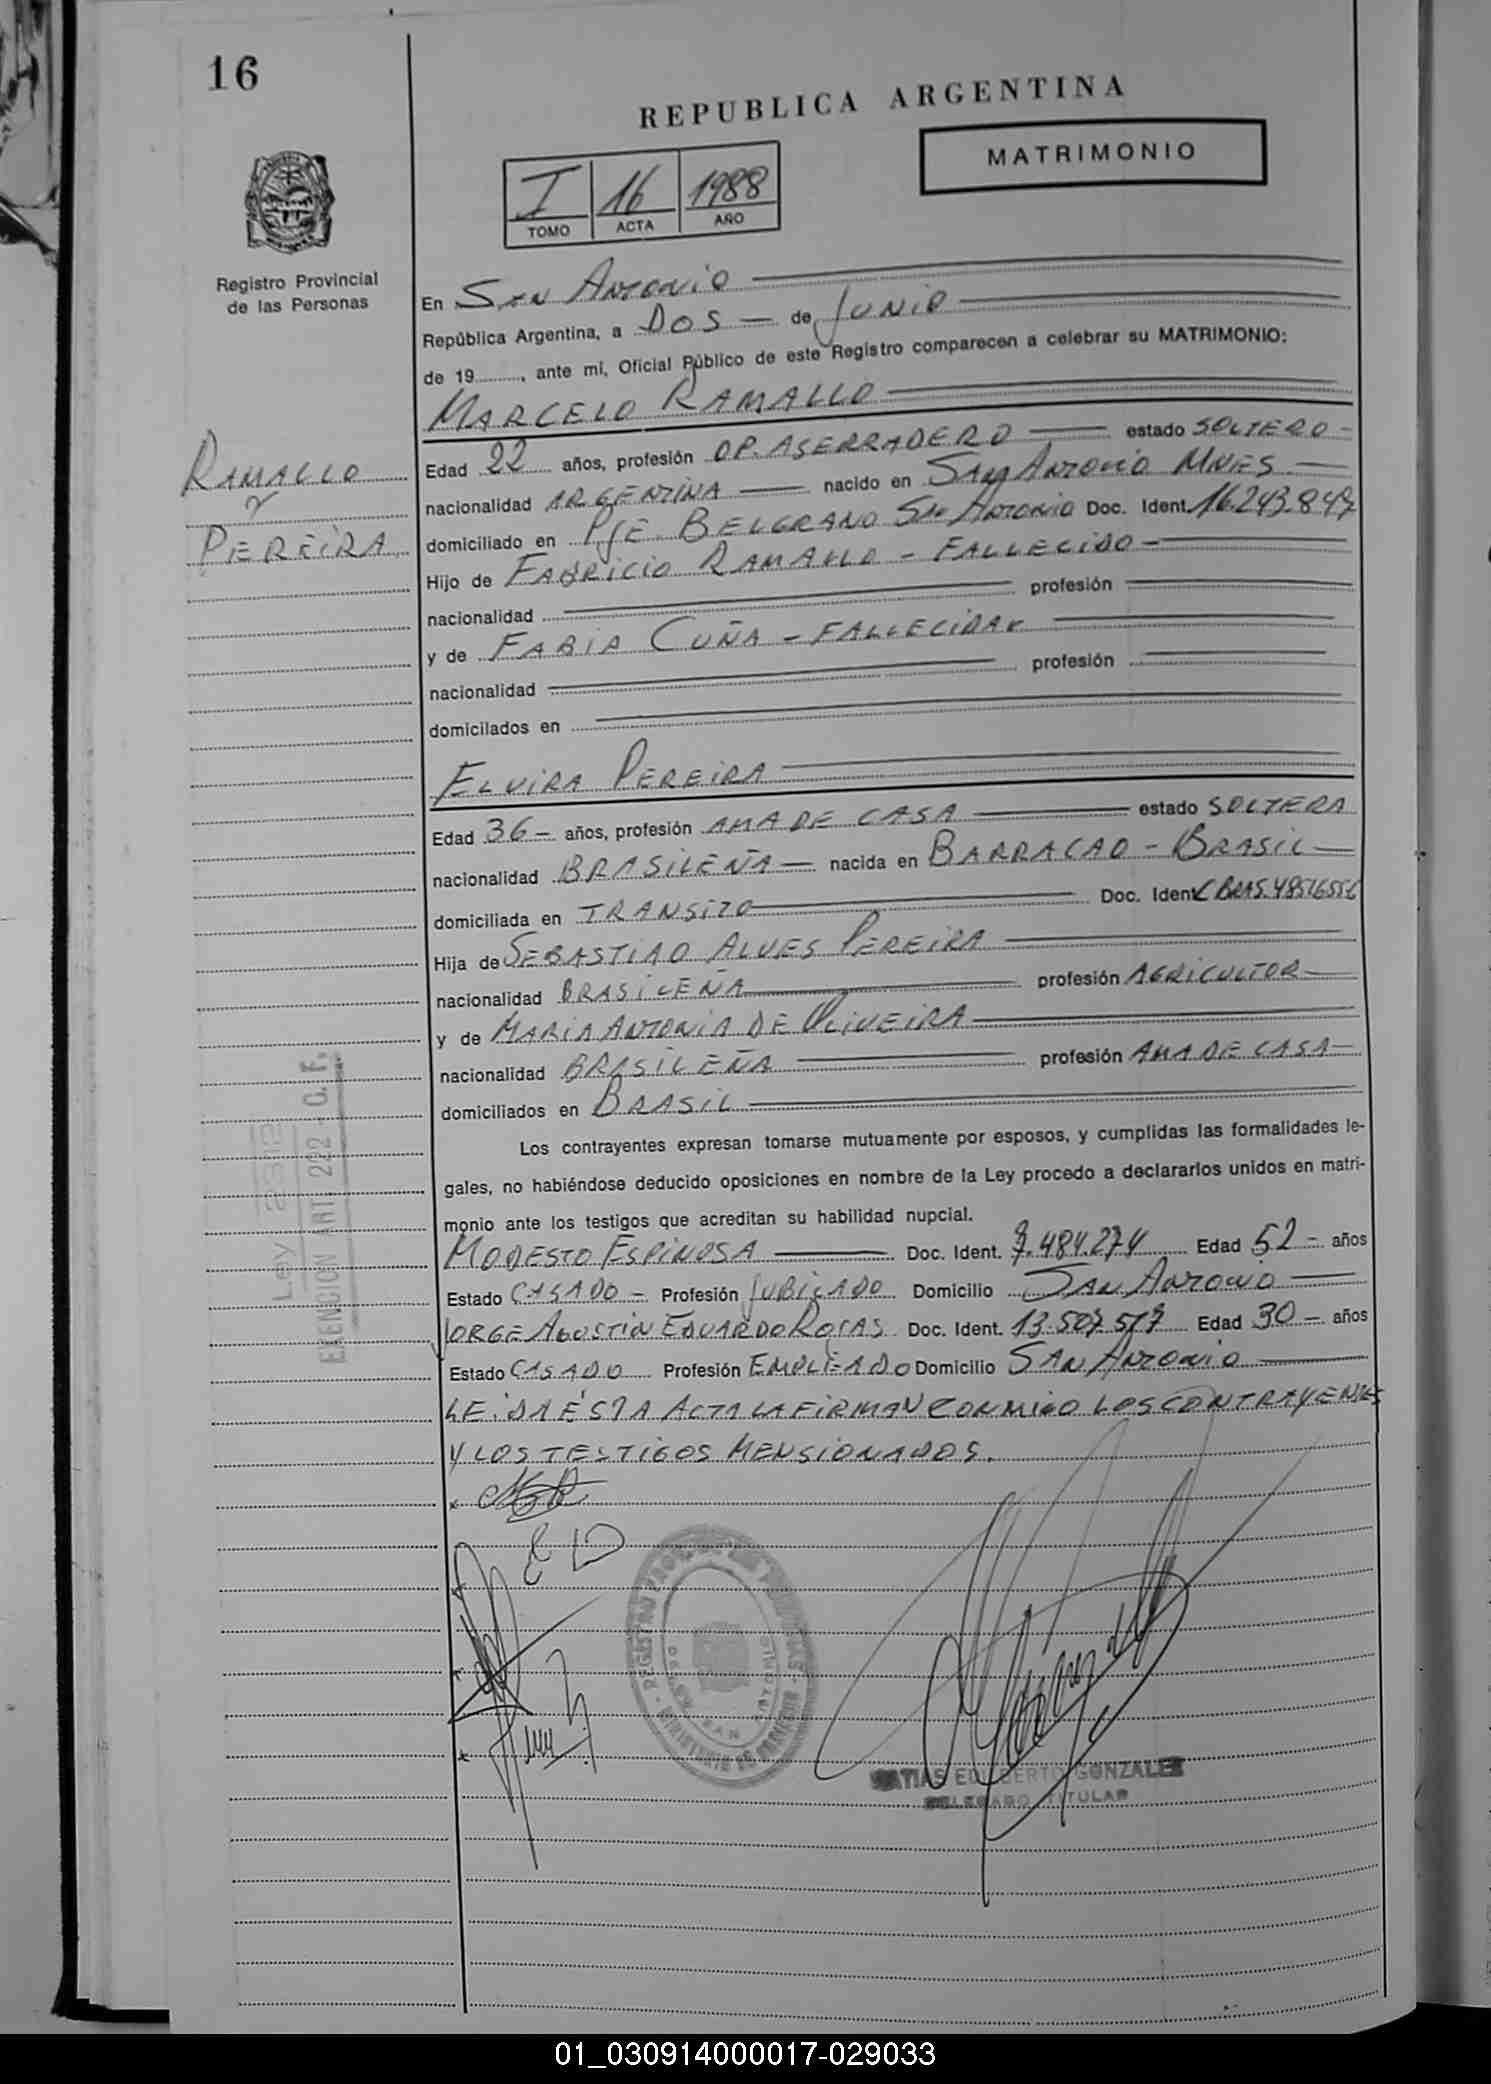 16
REPUBLICA ARGENTINA
MATRIMONIO
I 16 1988
TOMO ACTA AÑO
Registro Provincial
de las Personas
En SAN ANTONIO
República Argentina, a DOS de JUNIO
de 19........, ante mí, Oficial Público de este Registro comparecen a celebrar su MATRIMONIO:
MARCELO RAMALLO
RAMALLO
Y
PEREIRA
Edad 22 años, profesión OP. ASERRADERO estado SOLTERO
nacionalidad ARGENTINA nacido en SAN ANTONIO MNES
domiciliado en PJE. BELGRANO SAN ANTONIO Doc. Ident. 16.243.847
Hijo de FABRICIO RAMALLO - FALLECIDO -
nacionalidad profesión
y de FABIA CUÑA - FALLECIDA
nacionalidad profesión
domicilados en
ELVIRA PEREIRA
Edad 36 - años, profesión AMA DE CASA estado SOLTERA
nacionalidad BRASILEÑA nacida en BARRACAO - BRASIL
domiciliada en TRANSITO Doc. Ident. C BRAS. 48516556
Hija de SEBASTIAO ALVES PEREIRA
nacionalidad BRASILEÑA profesión AGRICULTOR
y de MARIA ANTONIA DE OLIVEIRA
nacionalidad BRASILEÑA profesión AMA DE CASA
domiciliados en BRASIL
Los contrayentes expresan tomarse mutuamente por esposos, y cumplidas las formalidades le-
gales, no habiéndose deducido oposiciones en nombre de la Ley procedo a declararlos unidos en matri-
monio ante los testigos que acreditan su habilidad nupcial.
MODESTO ESPINOSA Doc. Ident. 7.484.274 Edad 52 - años
Estado CASADO - Profesión JUBILADO Domicilio SAN ANTONIO
JORGE AGUSTIN EDUARDO ROJAS Doc. Ident. 13.507.577 Edad 30 - años
Estado CASADO Profesión EMPLEADO Domicilio SAN ANTONIO
LEIDA ÉSTA ACTA LA FIRMAN CONMIGO LOS CONTRAYENTES
Y LOS TESTIGOS MENSIONADOS.
Ley
EXENCION ART. 222 - C. F.
REGISTRO
SAN
MATIAS EDILBERTO GONZALEZ
DELEGADO TITULAR
01_030914000017-029033